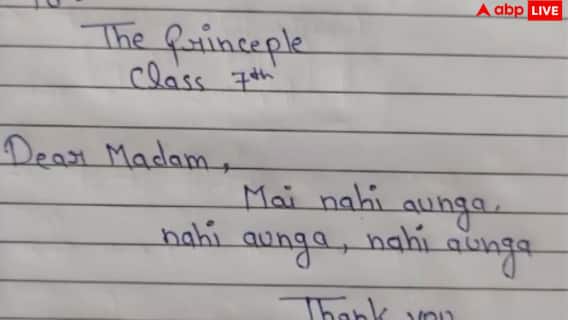 abp LIVE
The Princeple
Class 7th
Dear Madam,
Mai nahi aunga,
nahi aunga, nahi aunga
Thank you